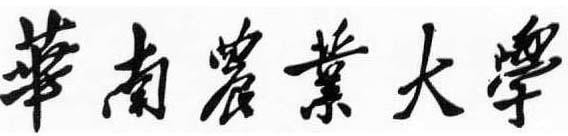 華南農業大學